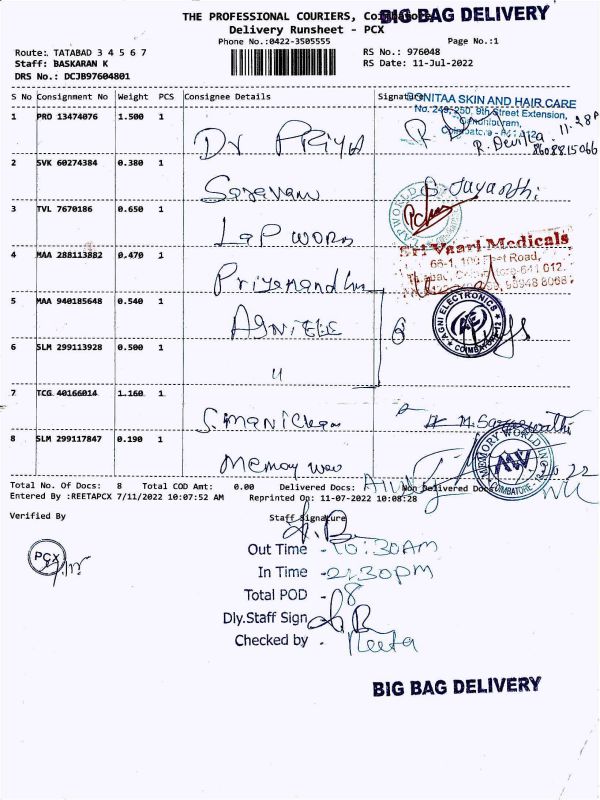 THE PROFESSIONAL COURIERS, Coimbatore
BIG BAG DELIVERY
Delivery Runsheet - PCX
Phone No.:0422-3505555
Page No.:1
Route: TATABAD 3 4 5 6 7
RS No.: 976048
Staff: BASKARAN K
RS Date: 11-Jul-2022
DRS No.: DCJB97604801
S No Consignment No Weight PCS Consignee Details Signature
BONITAA SKIN AND HAIR CARE
No. 249, 250, 9th Street Extension,
1 PRO 13474076 1.500 1 Dr PRIYA
R. Devika. 11.28A
8608815066
2 SVK 60274384 0.380 1 Saravanan
S. Jayanthi
3 TVL 7670186 0.650 1 Lap World
4 MAA 288113882 0.470 1
Sri Vaari Medicals
66-1, 100 Feet Road,
5 MAA 940185648 0.540 1
AGNI ELECTRONICS
COIMBATORE-12
6 SLM 299113928 0.500 1 "
7 TCG 40166014 1.160 1 S. Manickam
8 SLM 299117847 0.190 1
MEMORY WORLD INDIA
MW
COIMBATORE
Total No. Of Docs: 8 Total COD Amt: 0.00 Delivered Docs: Non Delivered Docs:
Entered By :REETAPCX 7/11/2022 10:07:52 AM Reprinted On: 11-07-2022 10:08:28
Verified By Staff Signature
PCX
Out Time - 10:30AM
In Time - 2:30PM
Total POD - 08
Dly.Staff Sign
Checked by . Reeta
BIG BAG DELIVERY